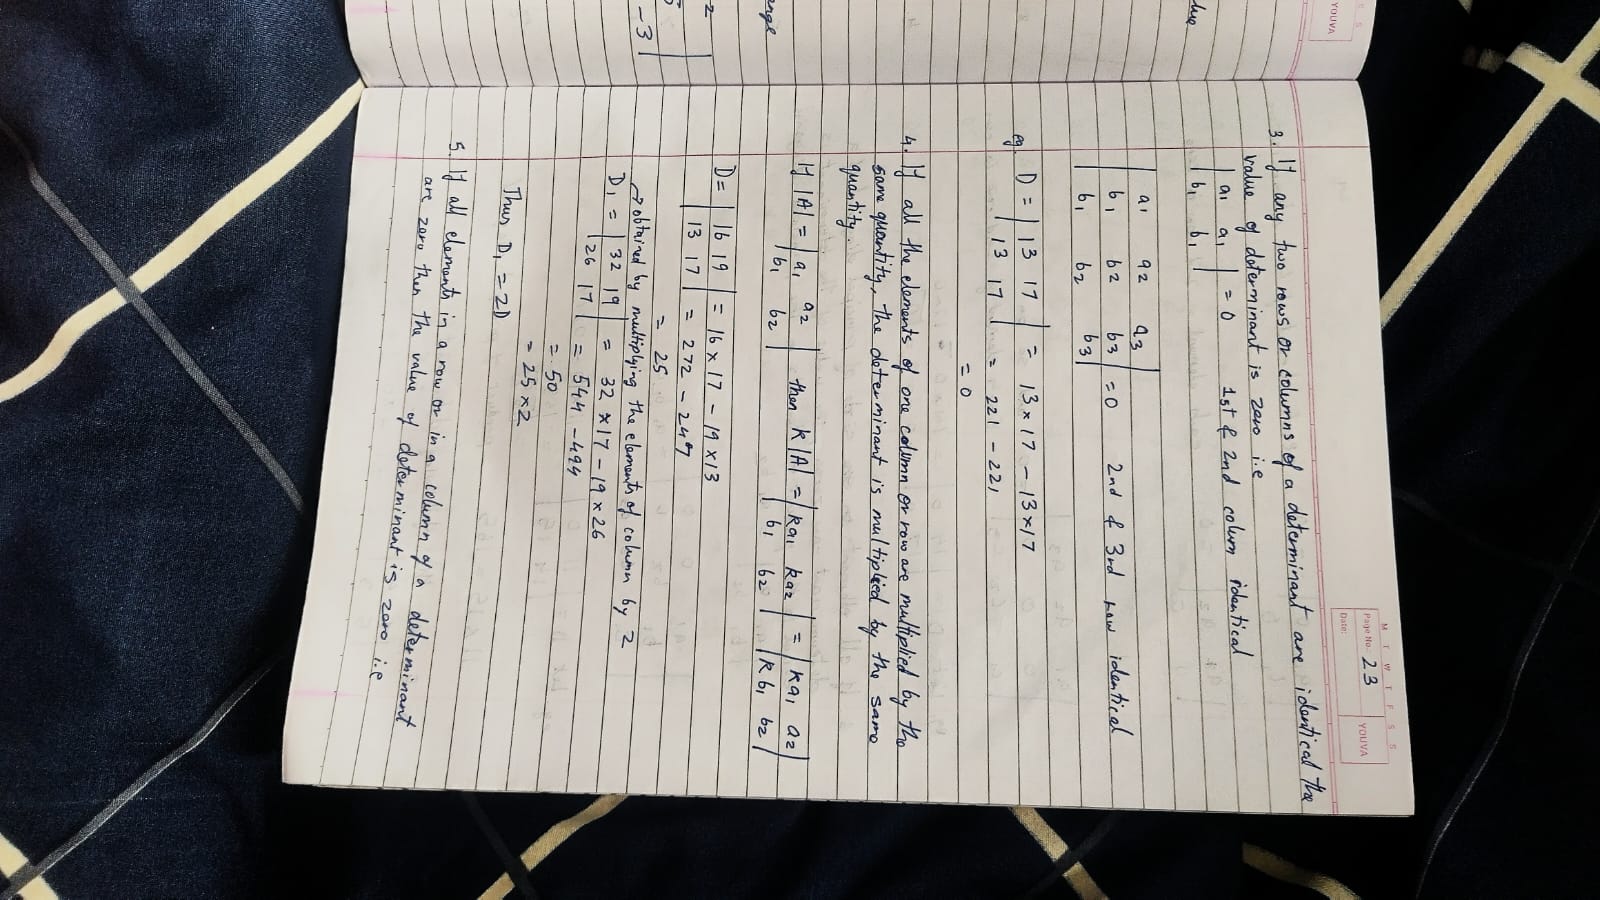 S S
YOUVA
lue
ange
2
5
-3
M T W T F S S
Page No. 23
YOUVA
Date:
3. If any two rows or columns of a determinant are identical the
value of determinant is zero i.e
| a1 a1 | = 0 1st & 2nd colum identical
| b1 b1 |
| a1 a2 a3 |
| b1 b2 b3 | = 0 2nd & 3rd row identical
| b1 b2 b3 |
eg. D = | 13 17 | = 13 x 17 - 13 x 17
| 13 17 | = 221 - 221
= 0
4. If all the elements of one column or row are multiplied by the
same quantity, the determinant is multiplied by the same
quantity.
If |A| = | a1 a2 | then K |A| = | ka1 ka2 | = | ka1 a2 |
| b1 b2 | | b1 b2 | | k b1 b2 |
D = | 16 19 | = 16 x 17 - 19 x 13
| 13 17 | = 272 - 247
= 25
→ obtained by multiplying the elements of column by 2
D1 = | 32 19 | = 32 x 17 - 19 x 26
| 26 17 | = 544 - 494
= 50
= 25 x 2
Thus D1 = 2D
5. If all elements in a row or in a column of a determinant
are zero then the value of determinant is zero i.e